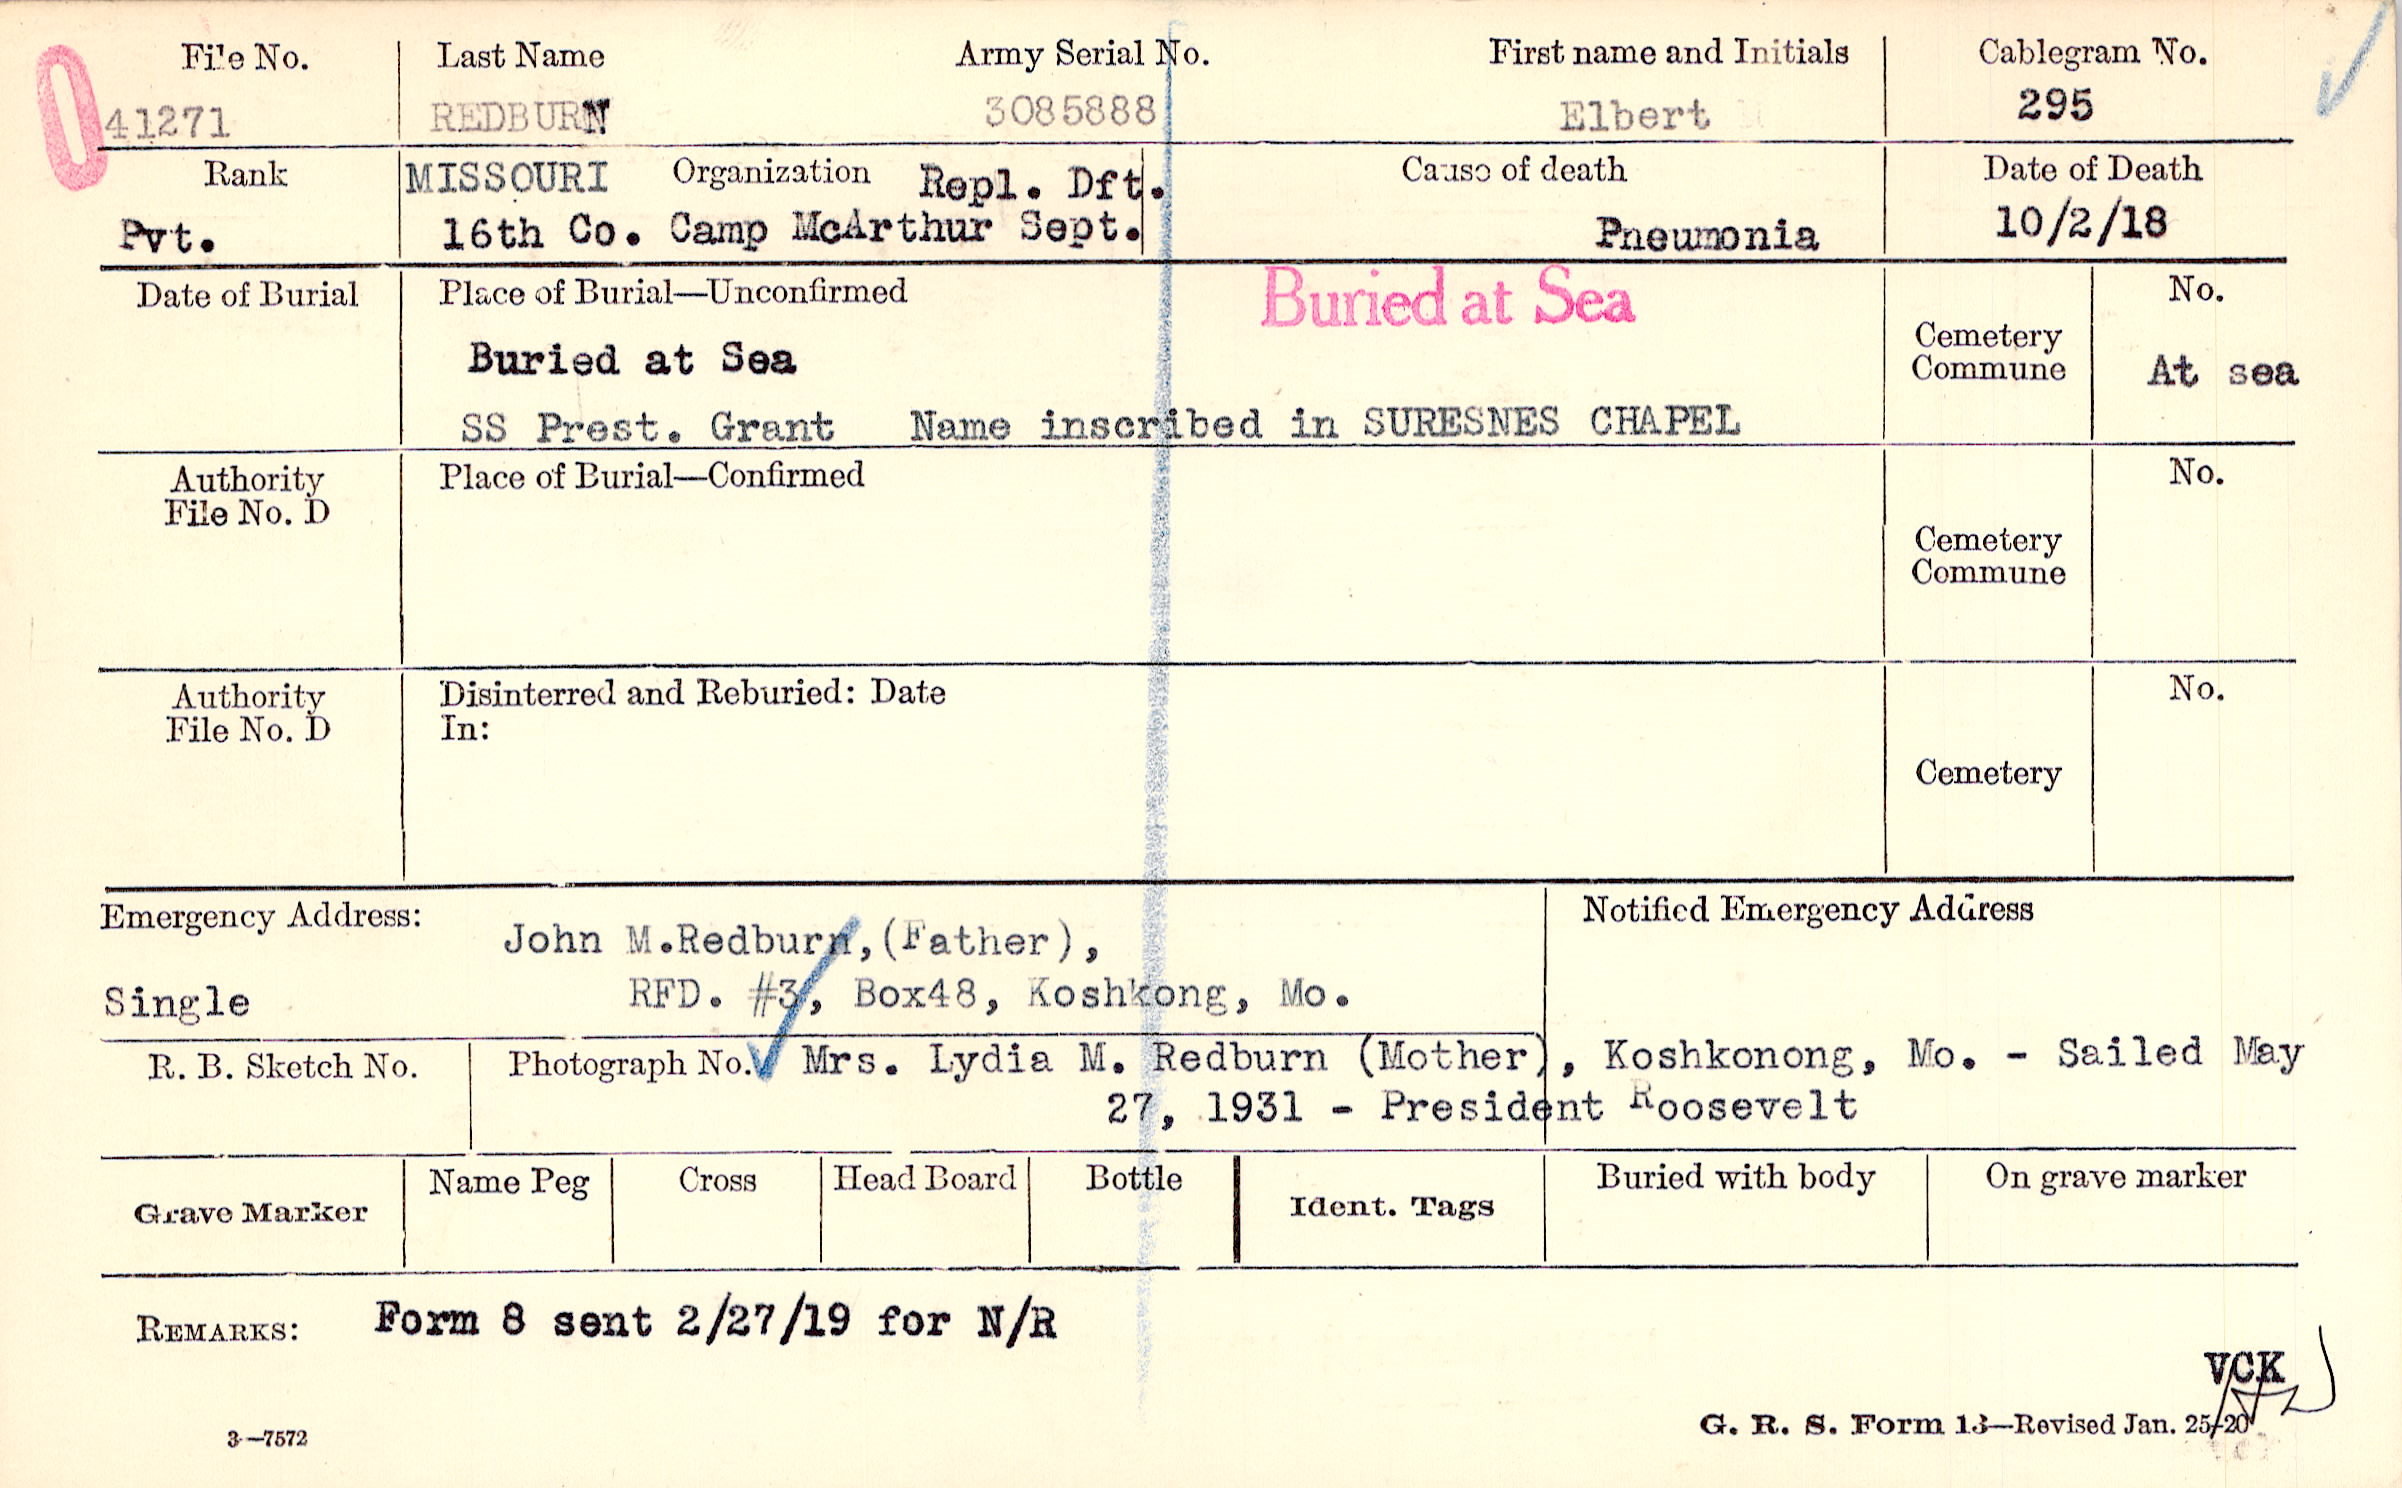 File No. Last Name Army Serial No. First name and Initials Cablegram No.
41271 REDBURN 3085888 Elbert 295
Rank MISSOURI Organization Repl. Dft. Cause of death Date of Death
Pvt. 16th Co. Camp McArthur Sept. Pneumonia 10/2/18
Date of Burial Place of Burial—Unconfirmed Buried at Sea No.
Buried at Sea Cemetery
Commune At sea
SS Prest. Grant Name inscribed in SURESNES CHAPEL
Authority Place of Burial—Confirmed No.
File No. D
Cemetery
Commune
Authority Disinterred and Reburied: Date No.
File No. D In:
Cemetery
Emergency Address: Notified Emergency Address
John M.Redburn,(Father),
Single RFD. #3, Box48, Koshkong, Mo.
R. B. Sketch No. Photograph No. Mrs. Lydia M. Redburn (Mother), Koshkonong, Mo. - Sailed May
27, 1931 - President Roosevelt
Grave Marker Name Peg Cross Head Board Bottle Ident. Tags Buried with body On grave marker
REMARKS: Form 8 sent 2/27/19 for N/R
VCK
3—7572 G. R. S. Form 13—Revised Jan. 25-20